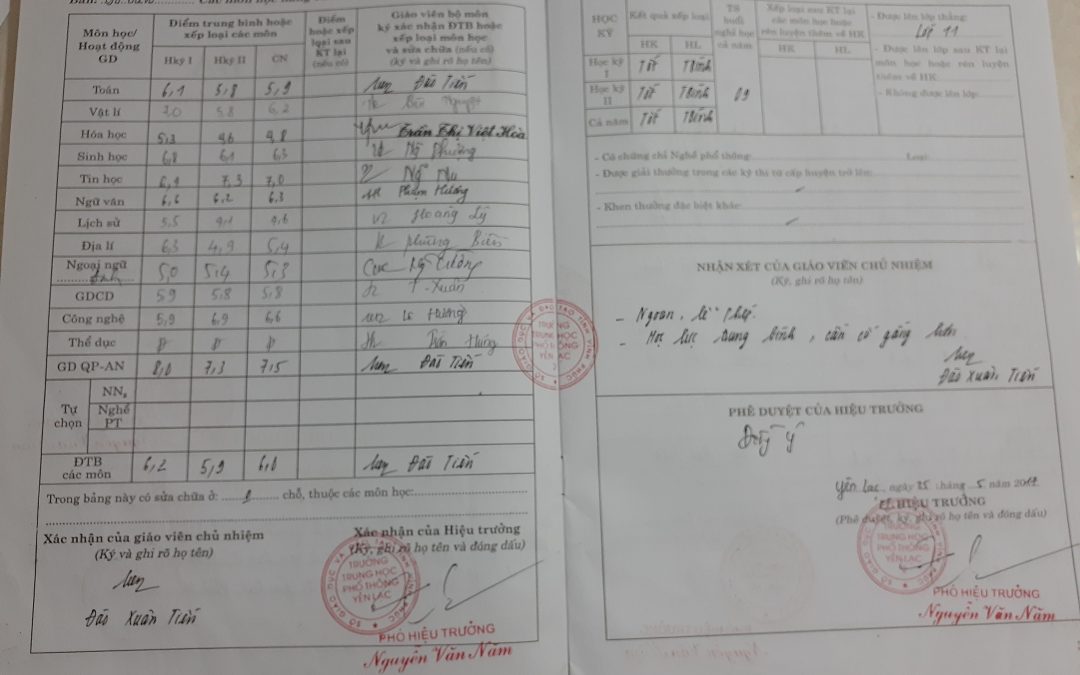 Môn học/ Hoạt động GD | Điểm trung bình hoặc xếp loại các môn | Điểm hoặc xếp loại sau KT lại (nếu có) | Giáo viên bộ môn ký xác nhận ĐTB hoặc xếp loại môn học và sửa chữa (nếu có) (ký và ghi rõ họ tên)
Hkỳ I | Hkỳ II | CN
Toán 6,1 5,8 5,9 Đào Tiến
Vật lí 5,8 6,2 Nguyệt
Hóa học 5,3 4,6 4,8 Trần Thị Việt Hòa
Sinh học 6,8 6,1 6,3 Ngô Phường
Tin học 6,4 7,3 7,0 Ngô
Ngữ văn 6,6 6,2 6,3 Phạm Hương
Lịch sử 5,5 4,1 4,6 Hoàng Lý
Địa lí 6,3 4,9 5,4 Phùng Biên
Ngoại ngữ Anh 5,0 5,4 5,3
GDCD 5,9 5,8 5,8 T. Xuân
Công nghệ 5,9 6,9 6,6 Lê Hương
Thể dục Đ Đ Đ Trần Hùng
GD QP-AN 8,0 7,3 7,5 Đào Tiến
Tự chọn
NN₂
Nghề PT
ĐTB các môn 6,2 5,9 6,0 Đào Tiến
Trong bảng này có sửa chữa ở: chỗ, thuộc các môn học:
Xác nhận của giáo viên chủ nhiệm
(Ký và ghi rõ họ tên)
Đào Xuân Tiến
Xác nhận của Hiệu trưởng
(Ký, ghi rõ họ tên và đóng dấu)
TRƯỜNG
TRUNG HỌC
PHỔ THÔNG
YÊN LẠC
PHÓ HIỆU TRƯỞNG
Nguyễn Văn Năm
SỞ GIÁO DỤC VÀ ĐÀO TẠO TỈNH VĨNH PHÚC
TRƯỜNG
TRUNG HỌC
PHỔ THÔNG
YÊN LẠC
HỌC KỲ | Kết quả xếp loại | TS buổi nghỉ học cả năm | Xếp loại sau KT lại các môn học hoặc rèn luyện thêm về HK
HK | HL | HK | HL
Học kỳ I Tốt TBình
Học kỳ II Tốt TBình 09
Cả năm Tốt TBình
- Được lên lớp thẳng:
Lớp 11
- Được lên lớp sau KT lại
môn học hoặc rèn luyện
thêm về HK:
- Không được lên lớp:
- Có chứng chỉ Nghề phổ thông: Loại:
- Được giải thưởng trong các kỳ thi từ cấp huyện trở lên:
- Khen thưởng đặc biệt khác:
NHẬN XÉT CỦA GIÁO VIÊN CHỦ NHIỆM
(Ký, ghi rõ họ tên)
- Ngoan, lễ phép.
- Học lực trung bình, cần cố gắng hơn
Đào Xuân Tiến
PHÊ DUYỆT CỦA HIỆU TRƯỞNG
Đồng ý
Yên Lạc, ngày 25 tháng 5 năm
HIỆU TRƯỞNG
(Phê duyệt, ký, ghi rõ họ tên và đóng dấu)
TRƯỜNG
TRUNG HỌC
PHỔ THÔNG
YÊN LẠC
PHÓ HIỆU TRƯỞNG
Nguyễn Văn Năm